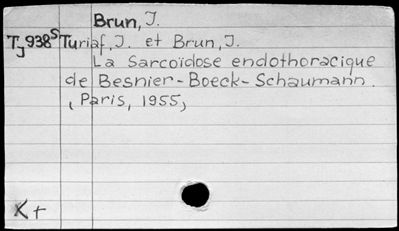 Brun, J.
TJ 938S Turiaf, J. et Brun, J.
La Sarcoïdose endothoracique
de Besnier-Boeck-Schaumann.
(Paris, 1955)
K+